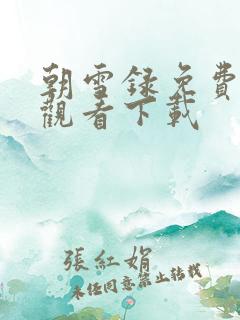 朝雪録免費
觀看下載
張紅娟
未经同意禁止转载